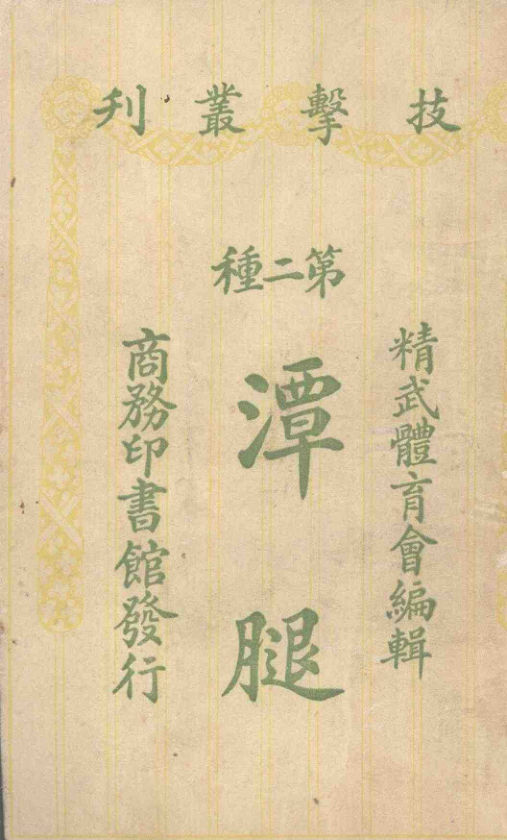 技擊叢刋
第二種
精武體育會編輯
潭腿
商務印書館發行